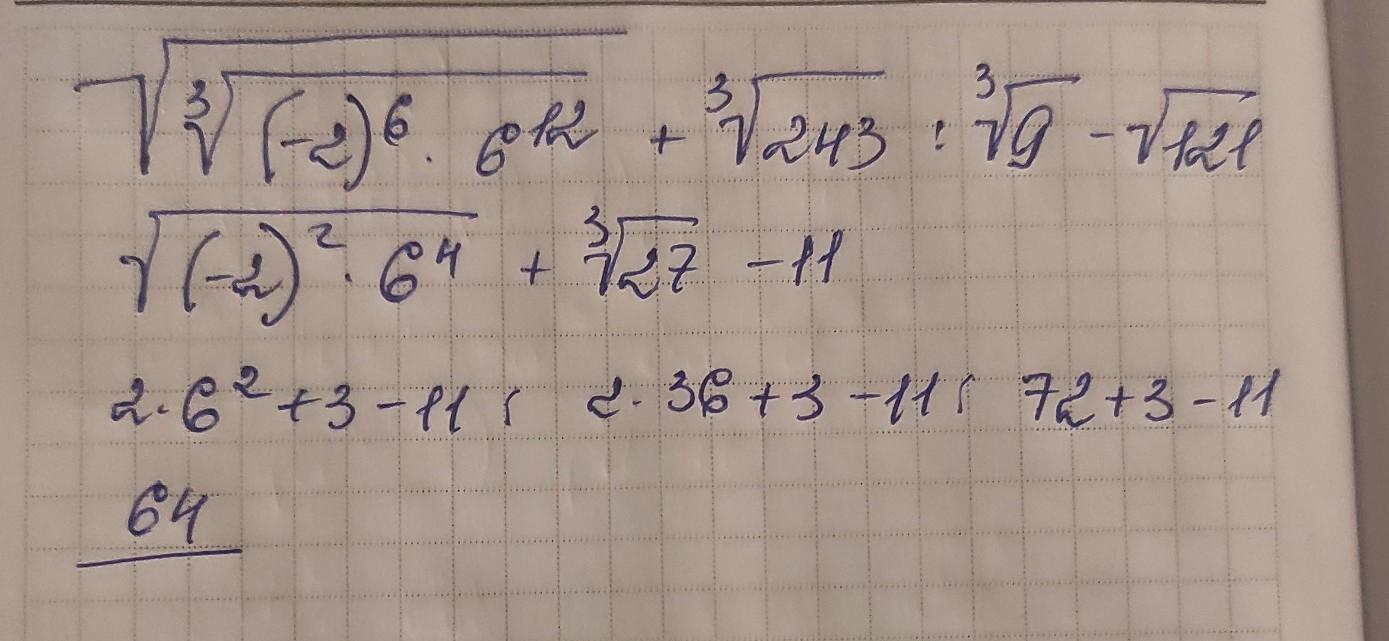 √(∛((-2)⁶ · 6¹²)) + ∛243 : ∛9 - √121
√((-2)² · 6⁴) + ∛27 - 11
2 · 6² + 3 - 11 ; 2 · 36 + 3 - 11 ; 72 + 3 - 11
64